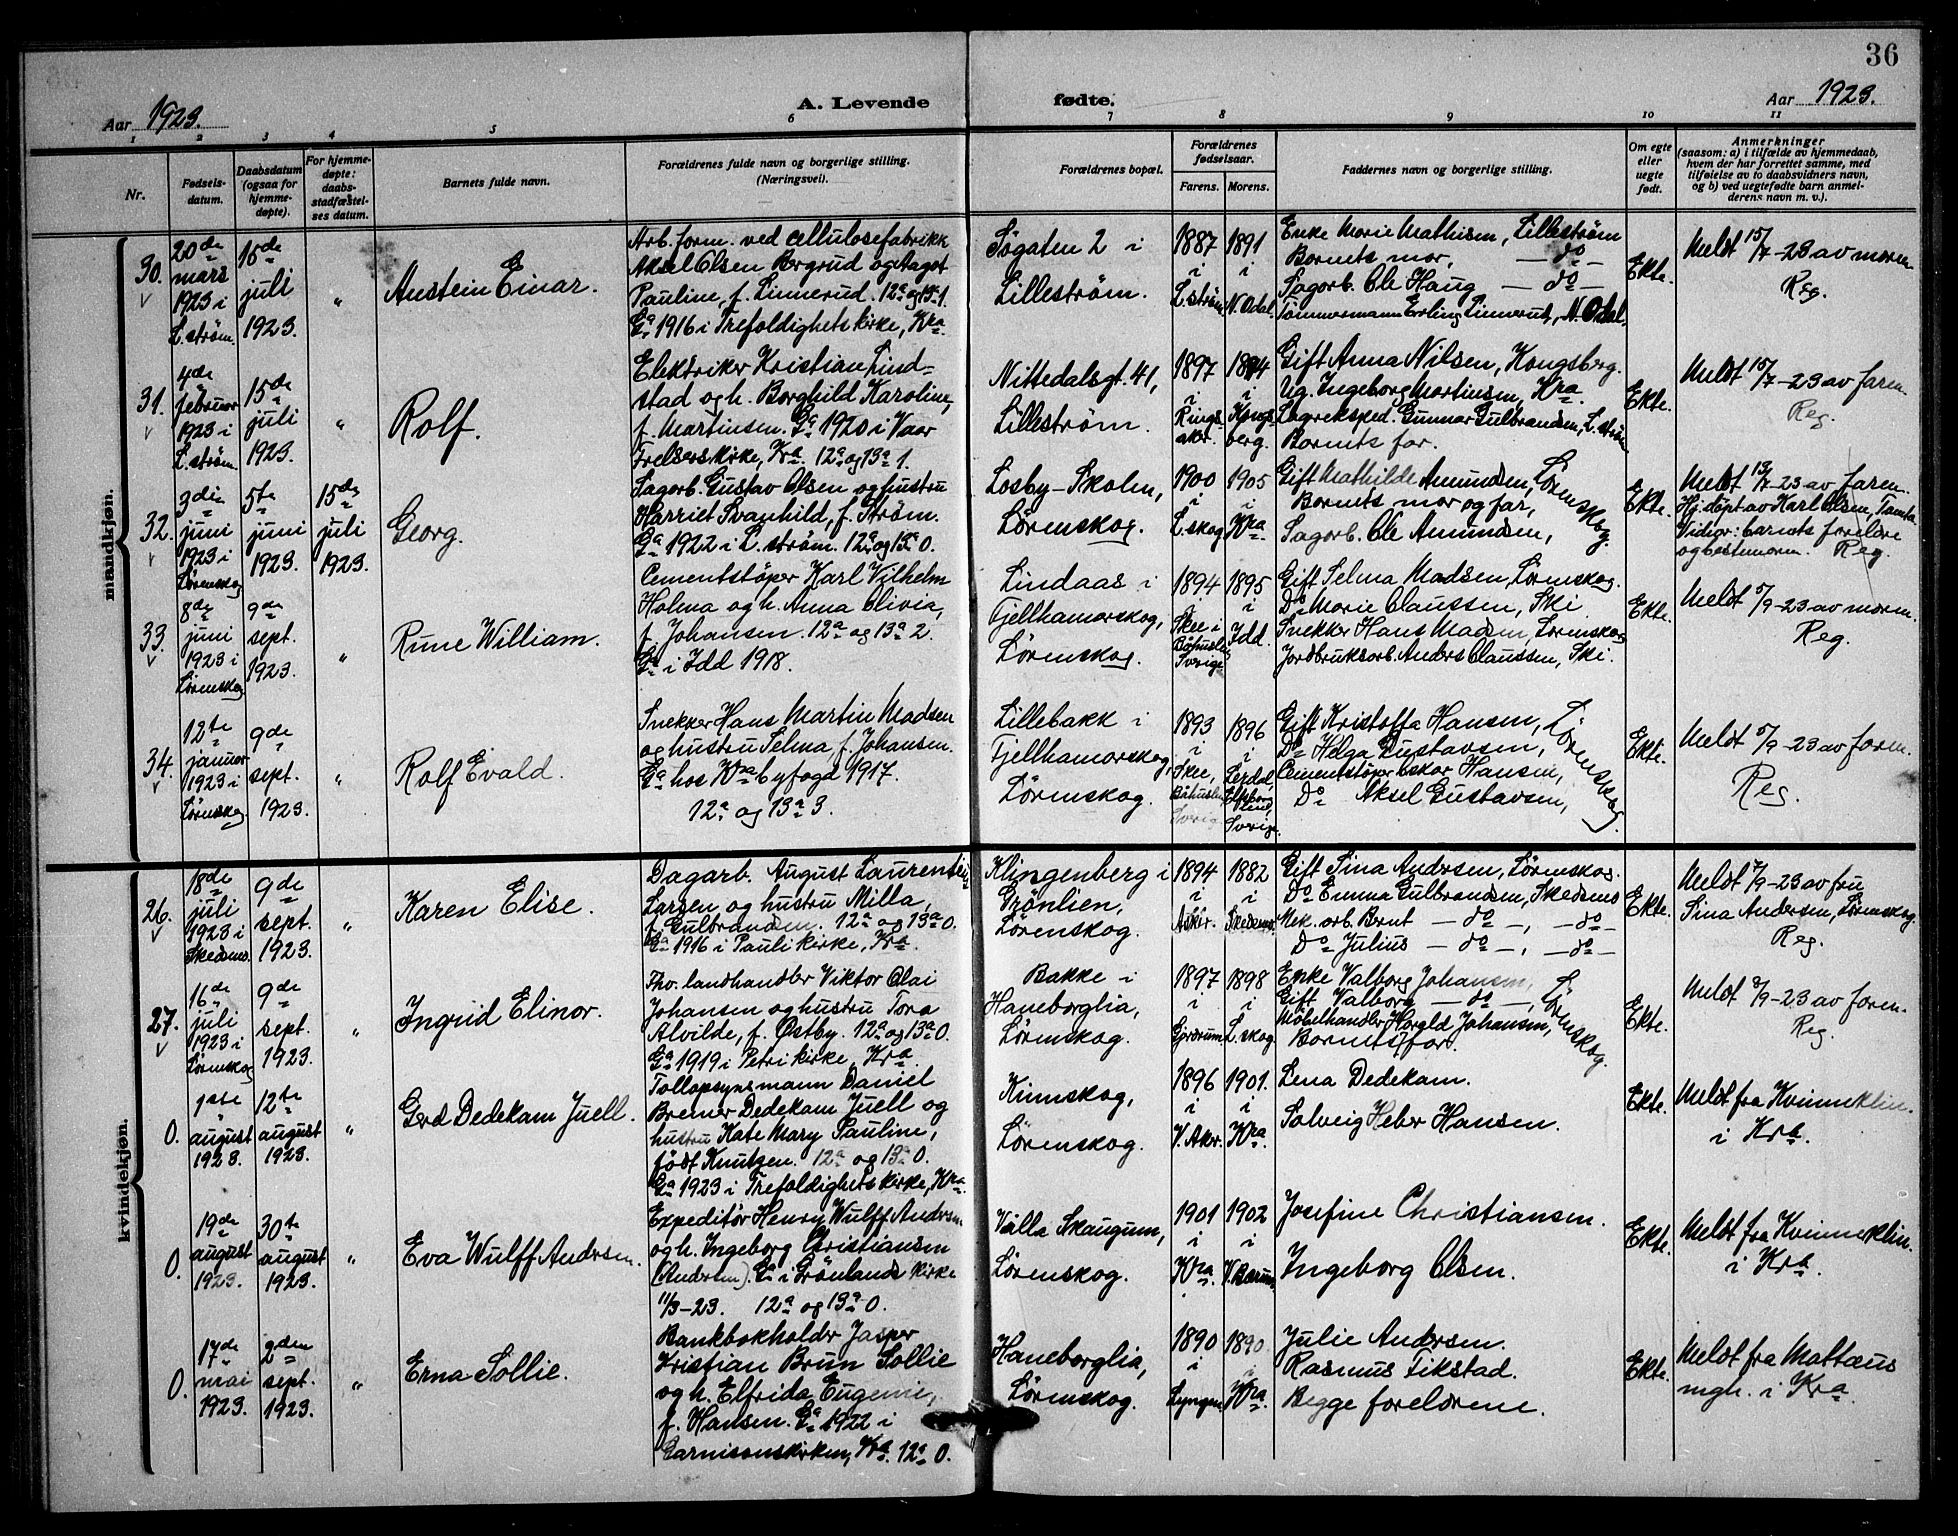 36
Aar 1923.
A. Levende
fødte.
Aar 1923.
1 2 3 4 5 6 7 8 9 10 11
Nr.
Fødsels-
datum.
Daabsdatum
(ogsaa for
hjemme-
døpte).
For hjemme-
døpte:
daabs-
stadfæstel-
ses datum.
Barnets fulde navn.
Forældrenes fulde navn og borgerlige stilling.
(Næringsvei).
Forældrenes bopæl.
Forældrenes
fødselsaar.
Farens. Morens.
Faddernes navn og borgerlige stilling.
Om egte
eller
uegte
født.
Anmerkninger
(saasom: a) i tilfælde av hjemmedaab,
hvem der har forrettet samme, med
tilføielse av to daabsvidners navn,
og b) ved uegtefødte barn anmel-
derens navn m. v.).
mandkjøn.
30.
20de
mars
1923 i
L.strøm.
15de
juli
1923.
"
Austein Einar.
Arb.form. ved cellulosefabrikk
Aksel Olsen Bergrud og Aagot
Pauline, f. Linnerud. 12a og 13a 1.
Ga 1916 i Trefoldighets kirke, Kra.
Søgaten 2 i
Lilleström.
1887
i
L.strøm
1891
i
N. Odal.
Enke Marie Mathisen, Lilleström
Barnets mor, — do —
Sagarb. Ole Haug — do —
Tømmermann Erling Linnerud, N. Odal.
Ekte.
Meldt 15/7-23 av moren
Reg.
31.
4de
februar
1923 i
L.strøm.
15de
juli
1923.
"
Rolf.
Elektriker Kristian Lind-
stad og h. Borghild Karoline,
f. Martinsen. Ga 1920 i Vaar
Frelsers kirke, Kra. 12a og 13a 1.
Nittedalsgt. 41,
Lilleström.
1897
i
Rings-
aker.
1894
i
Kongs
berg.
Gift Anna Nilsen, Kongsberg.
Ug. Ingeborg Martinsen, Kra.
Lagreksped. Gunnar Gulbrandsen, L.strøm
Barnets far.
Ekte.
Meldt 15/7-23 av faren
Reg.
32.
3die
juni
1923 i
Lørenskog
5te
juni
1923.
15de
juli
1923.
Georg.
Sagarb. Gustav Olsen og hustru
Harriet Svanhild, f. Strøm.
Ga 1922 i L.strøm. 12a og 13a 0.
Losby-Skolen,
Lørenskog.
1900
i
L.skog
1905
i
Kra
Gift Mathilde Amundsen,
Barnets mor og far,
Sagarb. Ole Amundsen,
Lørenskog.
Ekte.
Meldt 13/7-23 av faren.
Hj.døpt av Karl Olsen, Tomta
Vidner: barnets forældre
og bestemoren. Reg.
33.
8de
juni
1923 i
Lørenskog
9de
sept.
1923.
"
Rune William.
Cementstøper Karl Vilhelm
Holma og h. Anna Olivia,
f. Johansen. 12a og 13a 2.
Ga i Idd 1918.
Lindaas i
Fjellhamarskog,
Lørenskog.
1894
i
Skee i
Båhuslen
Sverige
1895
i
Idd.
Gift Selma Madsen, Lørenskog.
Do Marie Claussen, Ski
Snekker Hans Madsen, Lørenskog
Jordbruksarb. Anders Claussen, Ski.
Ekte.
Meldt 5/9-23 av moren.
Reg.
34.
12te
januar
1923 i
Lørenskog.
9de
sept.
1923.
"
Rolf Evald.
Snekker Hans Martin Madsen
og hustru Selma, f. Johansen.
Ga hos Kra byfogd 1917.
12a og 13a 3.
Lillebakk i
Fjellhamarskog,
Lørenskog.
1893
i
Skee,
Båhuslen
Sverig.
1896
i
Lerdal,
Elfsborg
len,
Sverige.
Gift Kristoffa Hansen,
Do Helga Gustavsen,
Cementstøper Oskar Hansen,
Do Aksel Gustavsen,
Lørenskog.
Ekte.
Meldt 5/9-23 av faren.
Reg.
kvindekjøn.
26.
18de
juli
1923 i
Skedsmo.
9de
sept.
1923.
"
Karen Elise.
Dagarb. August Laurentius
Larsen og hustru Milla,
f. Gulbrandsen. 12a og 13a 0.
Ga 1916 i Pauli kirke, Kra.
Klingenberg i
Grönlien,
Lørenskog.
1894
i
Asker.
1882
i
Skedsmo.
Gift Sina Andersen, Lørenskog.
Do Emma Gulbrandsen, Skedsmo
Mek. arb. Bernt — do —, — do —
Do Julius — do —, — do —
Ekte.
Meldt 7/9-23 av fru
Sina Andersen, Lørenskog.
Reg.
27.
16de
juli
1923 i
Lørenskog
9de
sept.
1923.
"
Ingrid Elinor.
Fhv. landhandler Viktor Olai
Johansen og hustru Tora
Alvilde, f. Østby. 12a og 13a 0.
Ga 1919 i Petri kirke, Kra.
Bakke i
Haneborglia,
Lørenskog.
1897
i
Gjerdrum
1898
i
L.skog
Enke Valborg Johansen,
Gift Valborg — do —,
Møbelhandler Harald Johansen,
Barnets far.
Lørenskog.
Ekte.
Meldt 8/9-23 av faren.
Reg.
0.
1ste
august
1923.
12te
august
1923.
"
Gerd Dedekam Juell.
Tollopsynsmann Daniel
Bremer Dedekam Juell og
hustru Kate Mary Pauline,
født Knutzen. 12a og 13a 0.
Ga 1923 i Trefoldighets kirke, Kra.
Kinnskog,
Lørenskog.
1896
i
V. Aker.
1901.
i
Kra.
Lena Dedekam.
Solveig Heber Hansen.
Ekte.
Meldt fra Kvinneklin.
i Kra.
0.
19de
august
1923.
30te
august
1923.
"
Eva Wulff Andersen.
Expeditör Henry Wulff Andersen
og h. Ingeborg Christiansen
(Andersen). Ga i Grönlands kirke
11/3-23. 12a og 13a 0.
Villa Skaugum,
Lørenskog.
1901
i
Kra.
1902
i
V. Bærum
Josefine Christiansen.
Ingeborg Olsen.
Ekte.
Meldt fra Kvinneklin.
i Kra.
0.
17de
mai
1923.
2den
sept.
1923.
"
Erna Sollie.
Bankbokholder Jasper
Kristian Brun Sollie
og h. Elfrida Eugenie,
f. Hansen. Ga 1922 i
Garnisonskirken, Kra. 12a 0.
Haneborglia,
Lørenskog.
1890
i
Lyngen
1890
i
Kra.
Julie Andersen.
Rasmus Fikstad.
Begge forældrene.
Ekte.
Meldt fra Mattæus
mgh. i Kra.